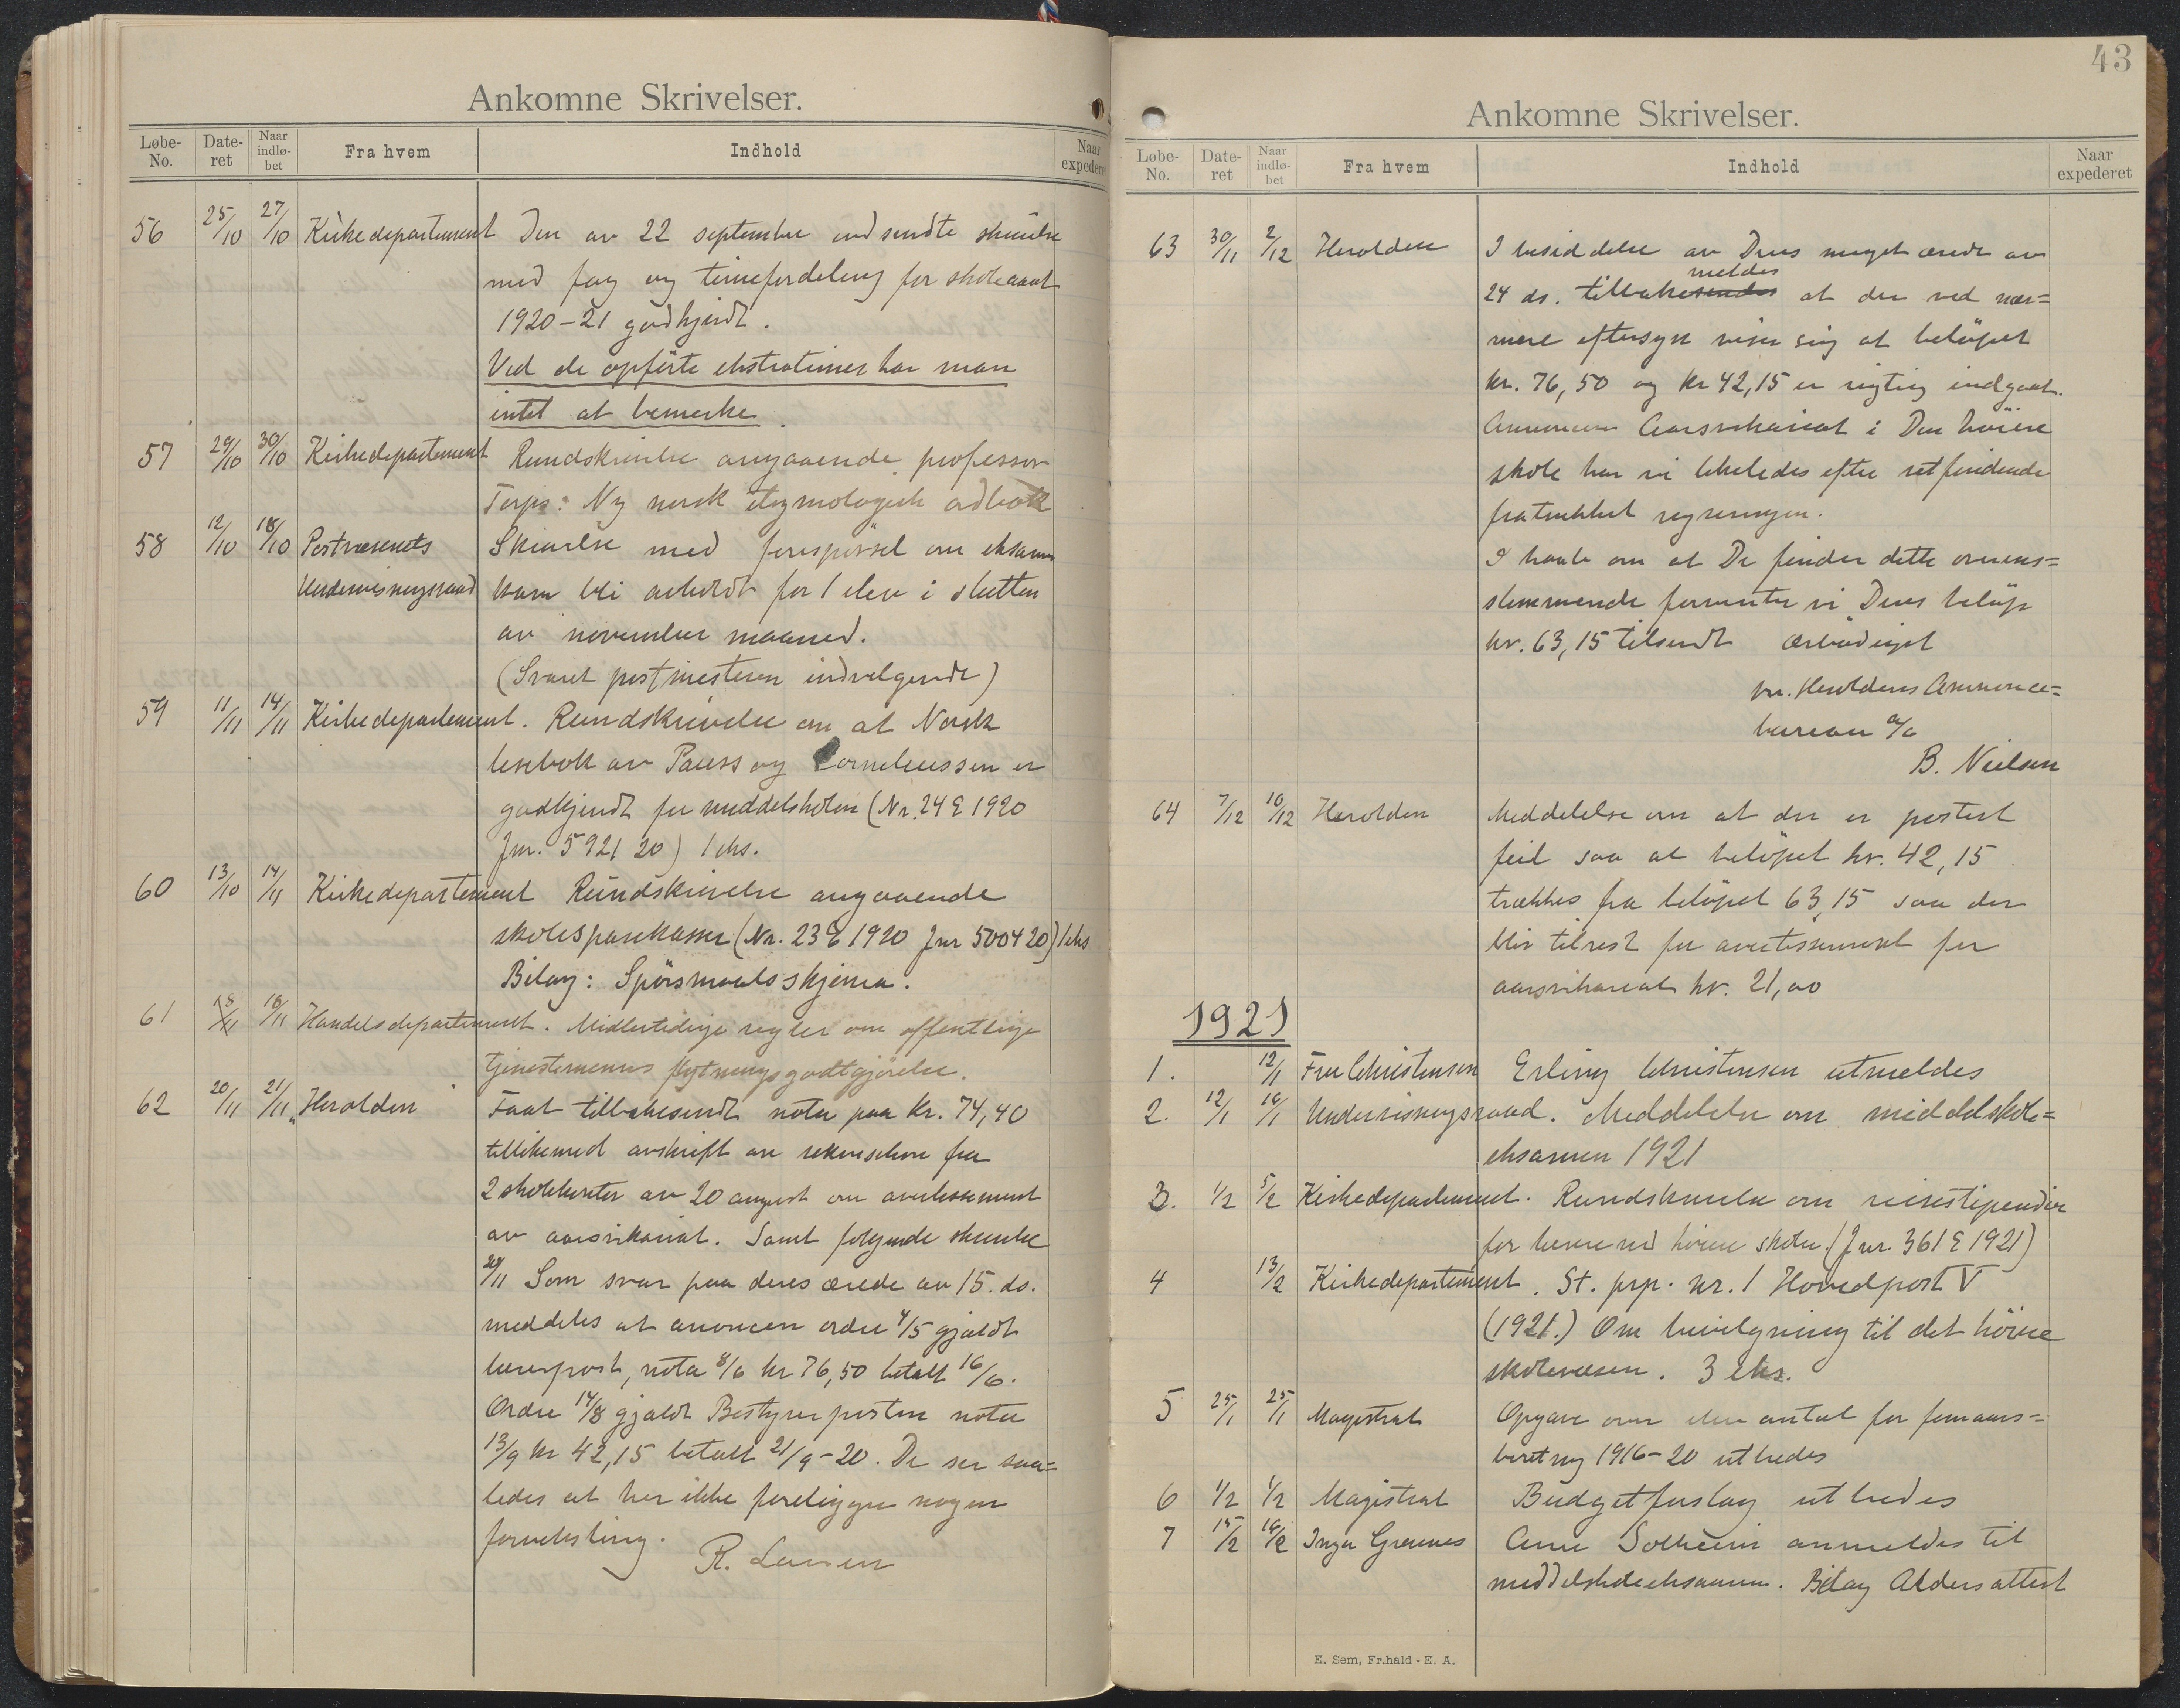 Ankomne Skrivelser.
Løbe-No. Date-ret Naar indlø-bet Fra hvem Indhold Naar expederet
56 25/10 27/10 Kirkedepartement Den av 22 september indsendte skrivelse
med fag og timefordeling for skoleaaret
1920-21 godkjendt.
Ved de opførte ekstratimer har man
intet at bemerke.
57 29/10 30/10 Kirkedepartement Rundskrivelse angaaende professor
Torps: Ny norsk etymologisk ordbok
58 12/10 18/10 Postvæsenets Skrivelse med forespørsel om eksamen
Undervisningsraad kan bli avholdt for 1 elev i slutten
av november maaned.
(Svaret postmesteren indvilgende)
59 11/11 14/11 Kirkedepartement. Rundskrivelse om at Norsk
lesebok av Pauss og Corneliussen er
godkjendt for middelskolen (Nr. 24 E 1920
Jnr. 5921 20) 1 eks.
60 13/10 14/11 Kirkedepartement Rundskrivelse angaaende
skolesparekasser (Nr. 23 E 1920 Jnr 5004 20) 1 eks
Bilag: Spørsmaalsskjema.
61 16/11 Handelsdepartement. Midlertidige regler om offentlige
tjenestemenns flytningsgodtgjørelse.
62 20/11 21/11 "Herolden" Faat tilbakesendt nota paa Kr. 74,40
tillikemed avskrift av rekvisition fra
2 skolekontor av 20 august om avertissement
av aarsvikariat. Samt følgende skrivelse
20/11 Som svar paa deres ærede av 15. ds.
meddeles at annoncen ordre 4/5 gjaldt
lærerpost, nota 8/6 kr 76,50 betalt 16/6.
Ordre 14/8 gjaldt Bestyrerposten nota
13/9 kr 42,15 betalt 21/9-20. De ser saa=
ledes at her ikke foreligger nogen
forveksling.
R. Larsen
43
Ankomne Skrivelser.
Løbe-No. Date-ret Naar indlø-bet Fra hvem Indhold Naar expederet
63 30/11 2/12 Herolden I besiddelse av Deres meget ærede av
meldes
24 ds. tilbakesendes at der ved nær=
mere eftersyn viser sig at beløpet
kr. 76,50 og kr 42,15 er rigtig indgaat.
Annoncen Aarsvikariat i Den høiere
skole har vi likeledes efter retfindende
fratrukket regningen.
I haab om at De finder dette overens=
stemmende forventer vi Deres beløp
kr. 63,15 tilsendt ærbødigst
pr. Heroldens Annonce=
bureau a/s
B. Nielsen
64 7/12 10/12 Herolden Meddelelse om at der er postert
feil saa at beløpet kr. 42,15
trækkes fra beløpet 63,15 saa der
blir tilrest for avertissement for
aarsvikariat kr. 21,00
1921
1. 12/1 Fru Christensen Erling Christensen utmeldes
2. 12/1 16/1 Undervisningsraad. Meddelelse om middelskole=
eksamen 1921
3. 1/2 5/2 Kirkedepartement. Rundskrivelse om reisestipendier
for lærere ved høiere skoler. (Jnr. 361 E 1921)
4 13/2 Kirkedepartement. St. prp. nr. 1 Hovedpost V
(1921.) Om bevilgning til det høiere
skolevæsen. 3 eks.
5 25/1 25/1 Magistrat Opgave over elev antal for femaars=
beretng 1916-20 utbedes
6 1/2 1/2 Magistrat Budgetforslag utbedes
7 15/2 16/2 Inga Grennes Arne Solheim anmeldes til
middelskoleeksamen. Bilag Aldersattest
E. Sem, Fr.hald - E. A.